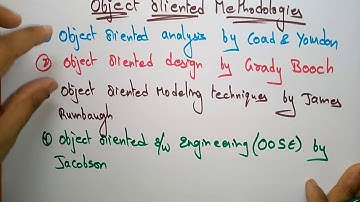 Object Oriented Methodologies
① Object oriented analysis by Coad & Yourdon
② Object oriented design by Grady Booch
Object oriented Modeling techniques by James
Rumbaugh
④ Object oriented s/w Engineering (OOSE) by
Jacobson